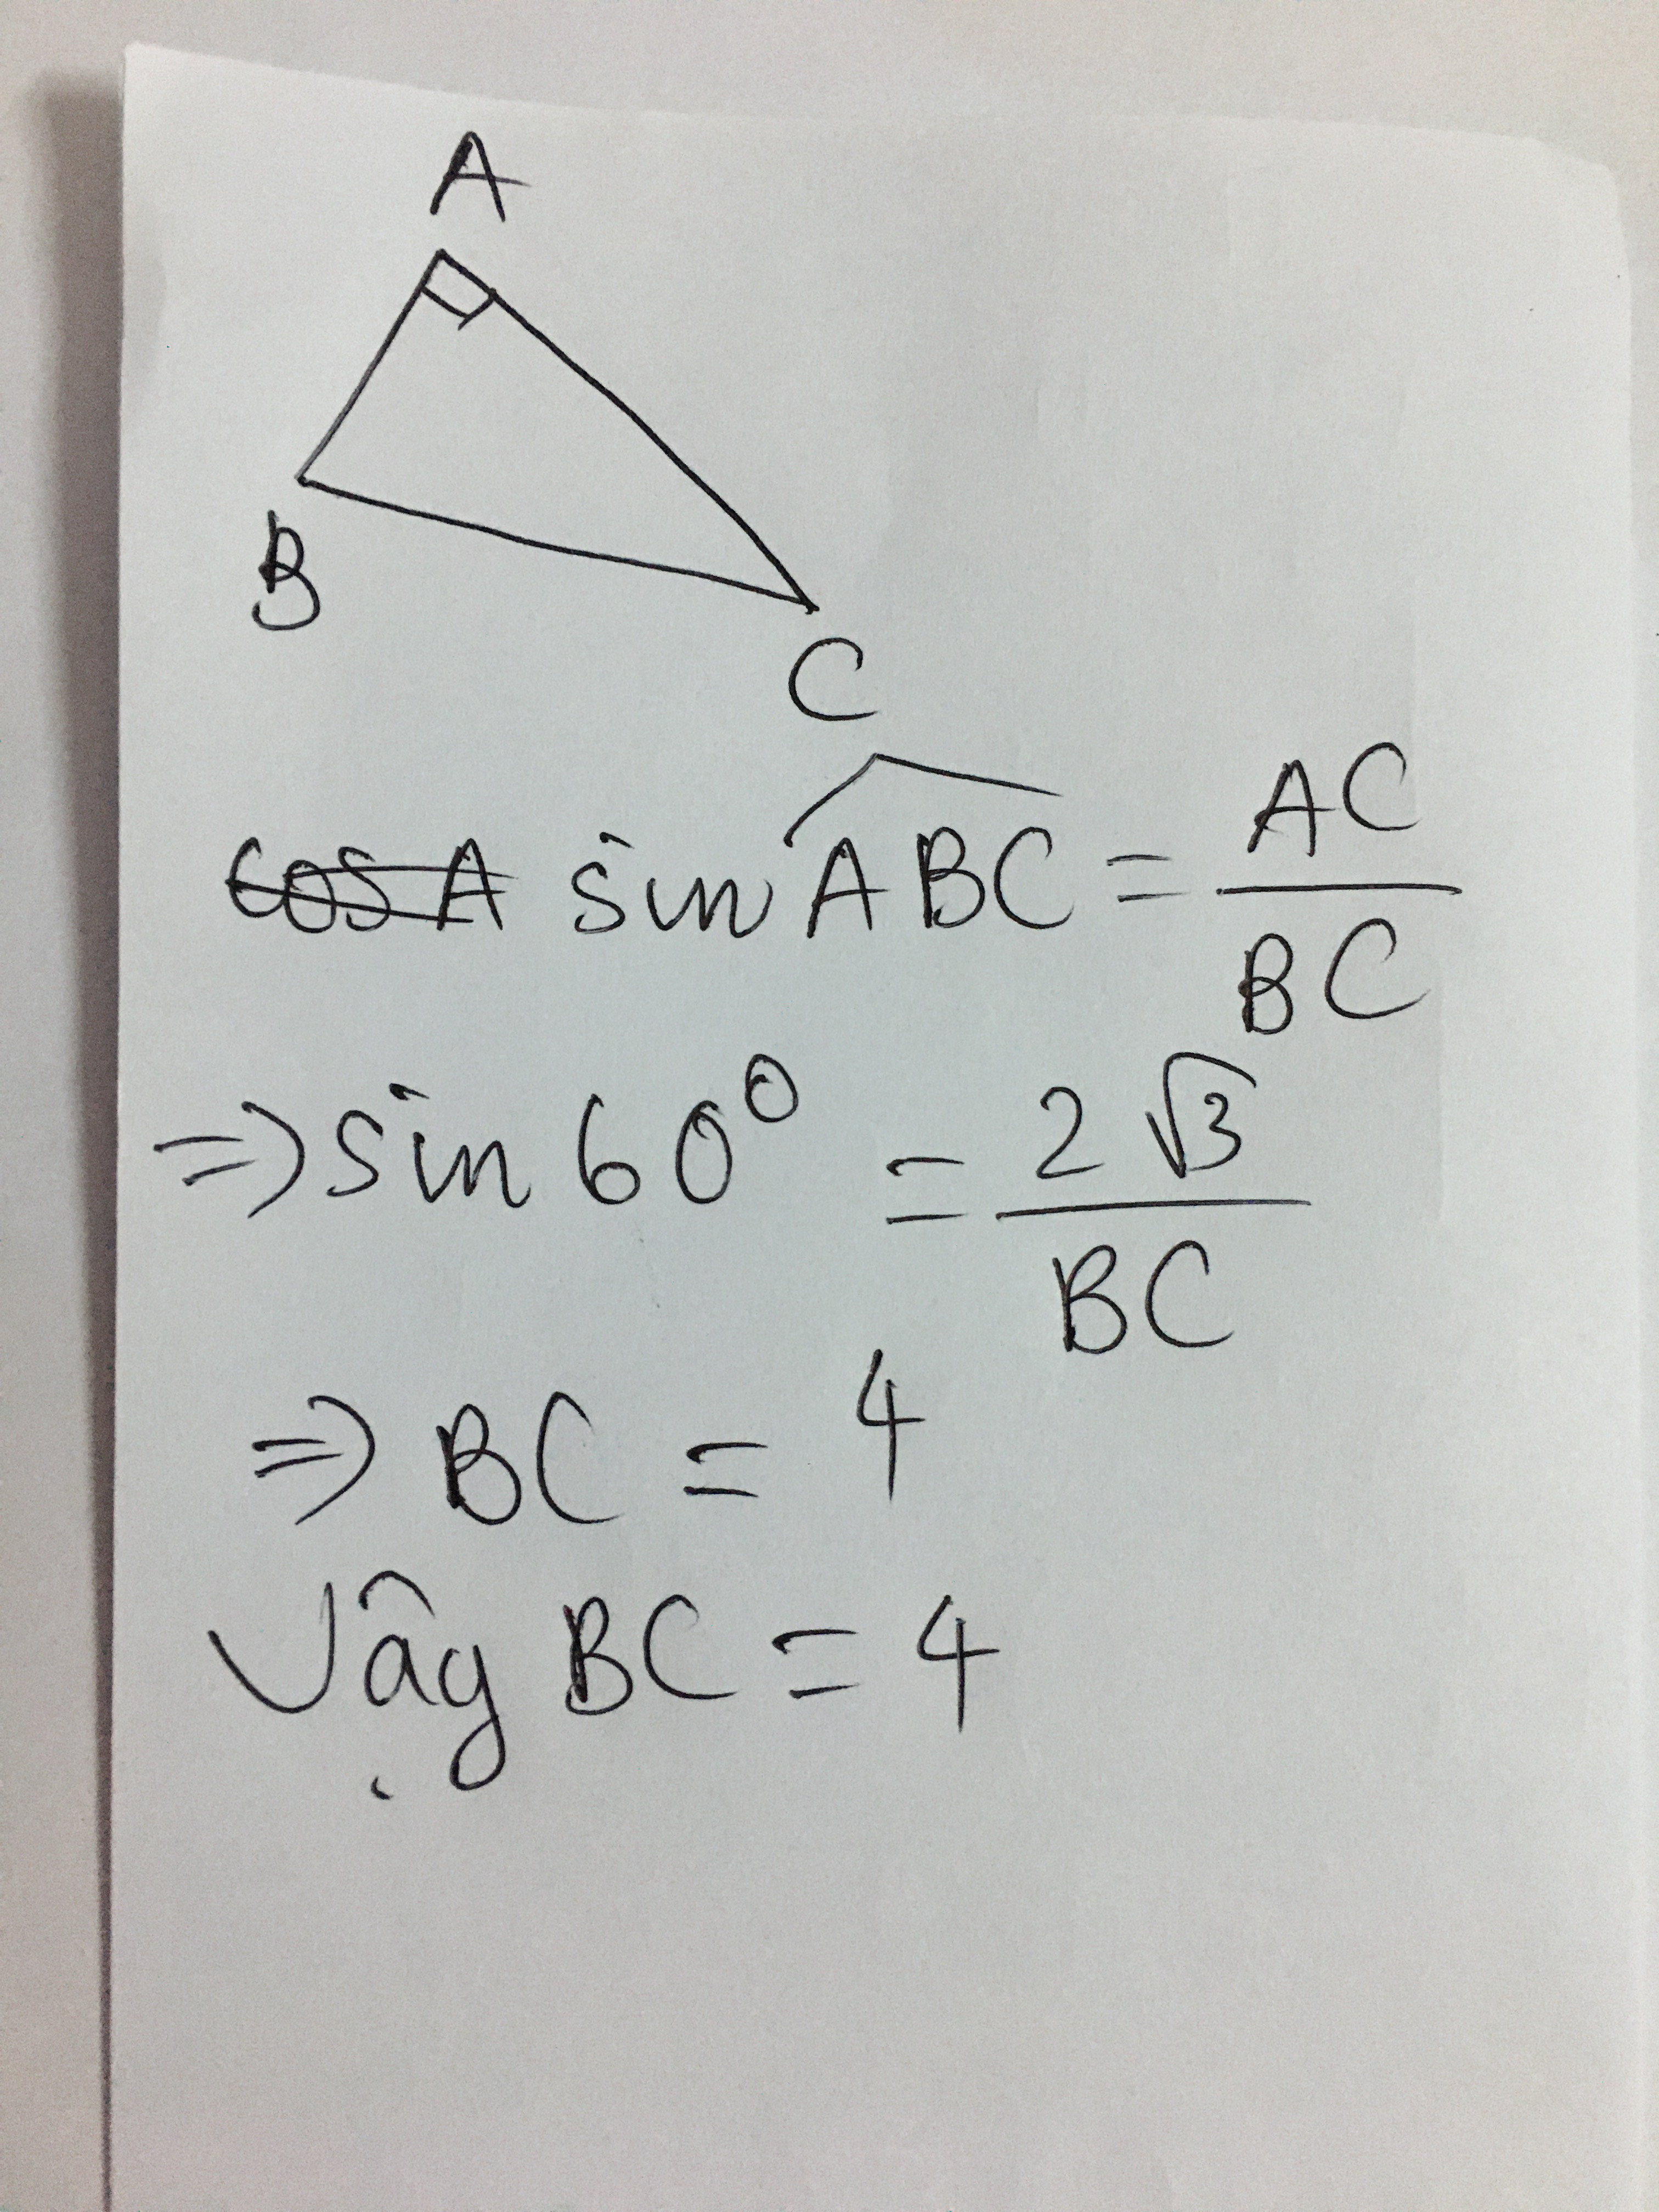 A
B
C
cos A sin ABC = AC/BC
=> sin 60⁰ = 2√3/BC
=> BC = 4
Vậy BC = 4